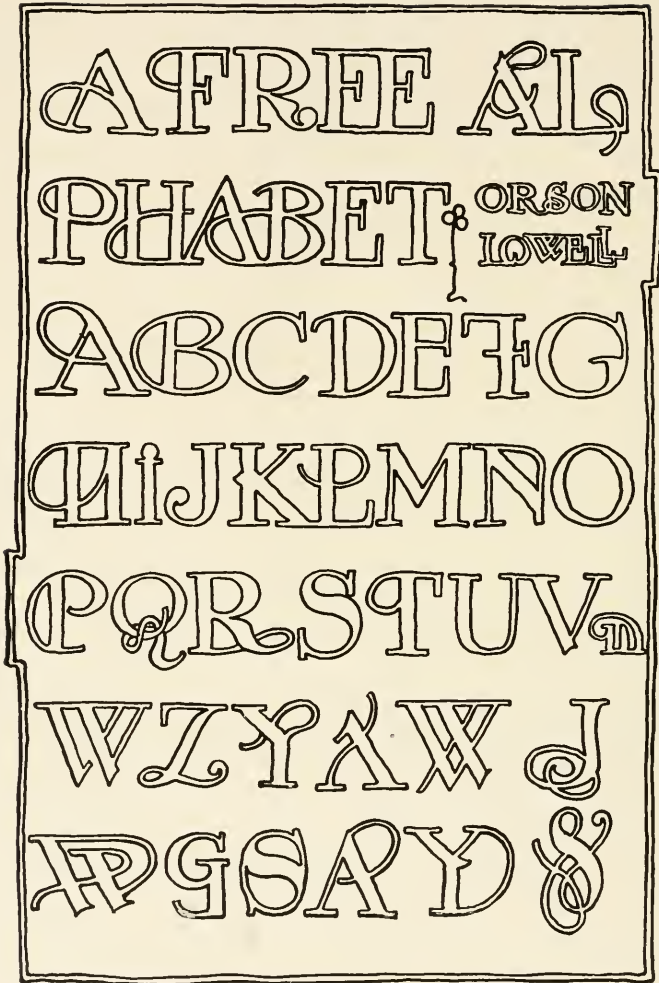 A FREE AL,
PHABET
ORSON
LOWELL
ABCDEFG
HiJKLMNO
PQRSTUV
WZYXWJ
GSA &